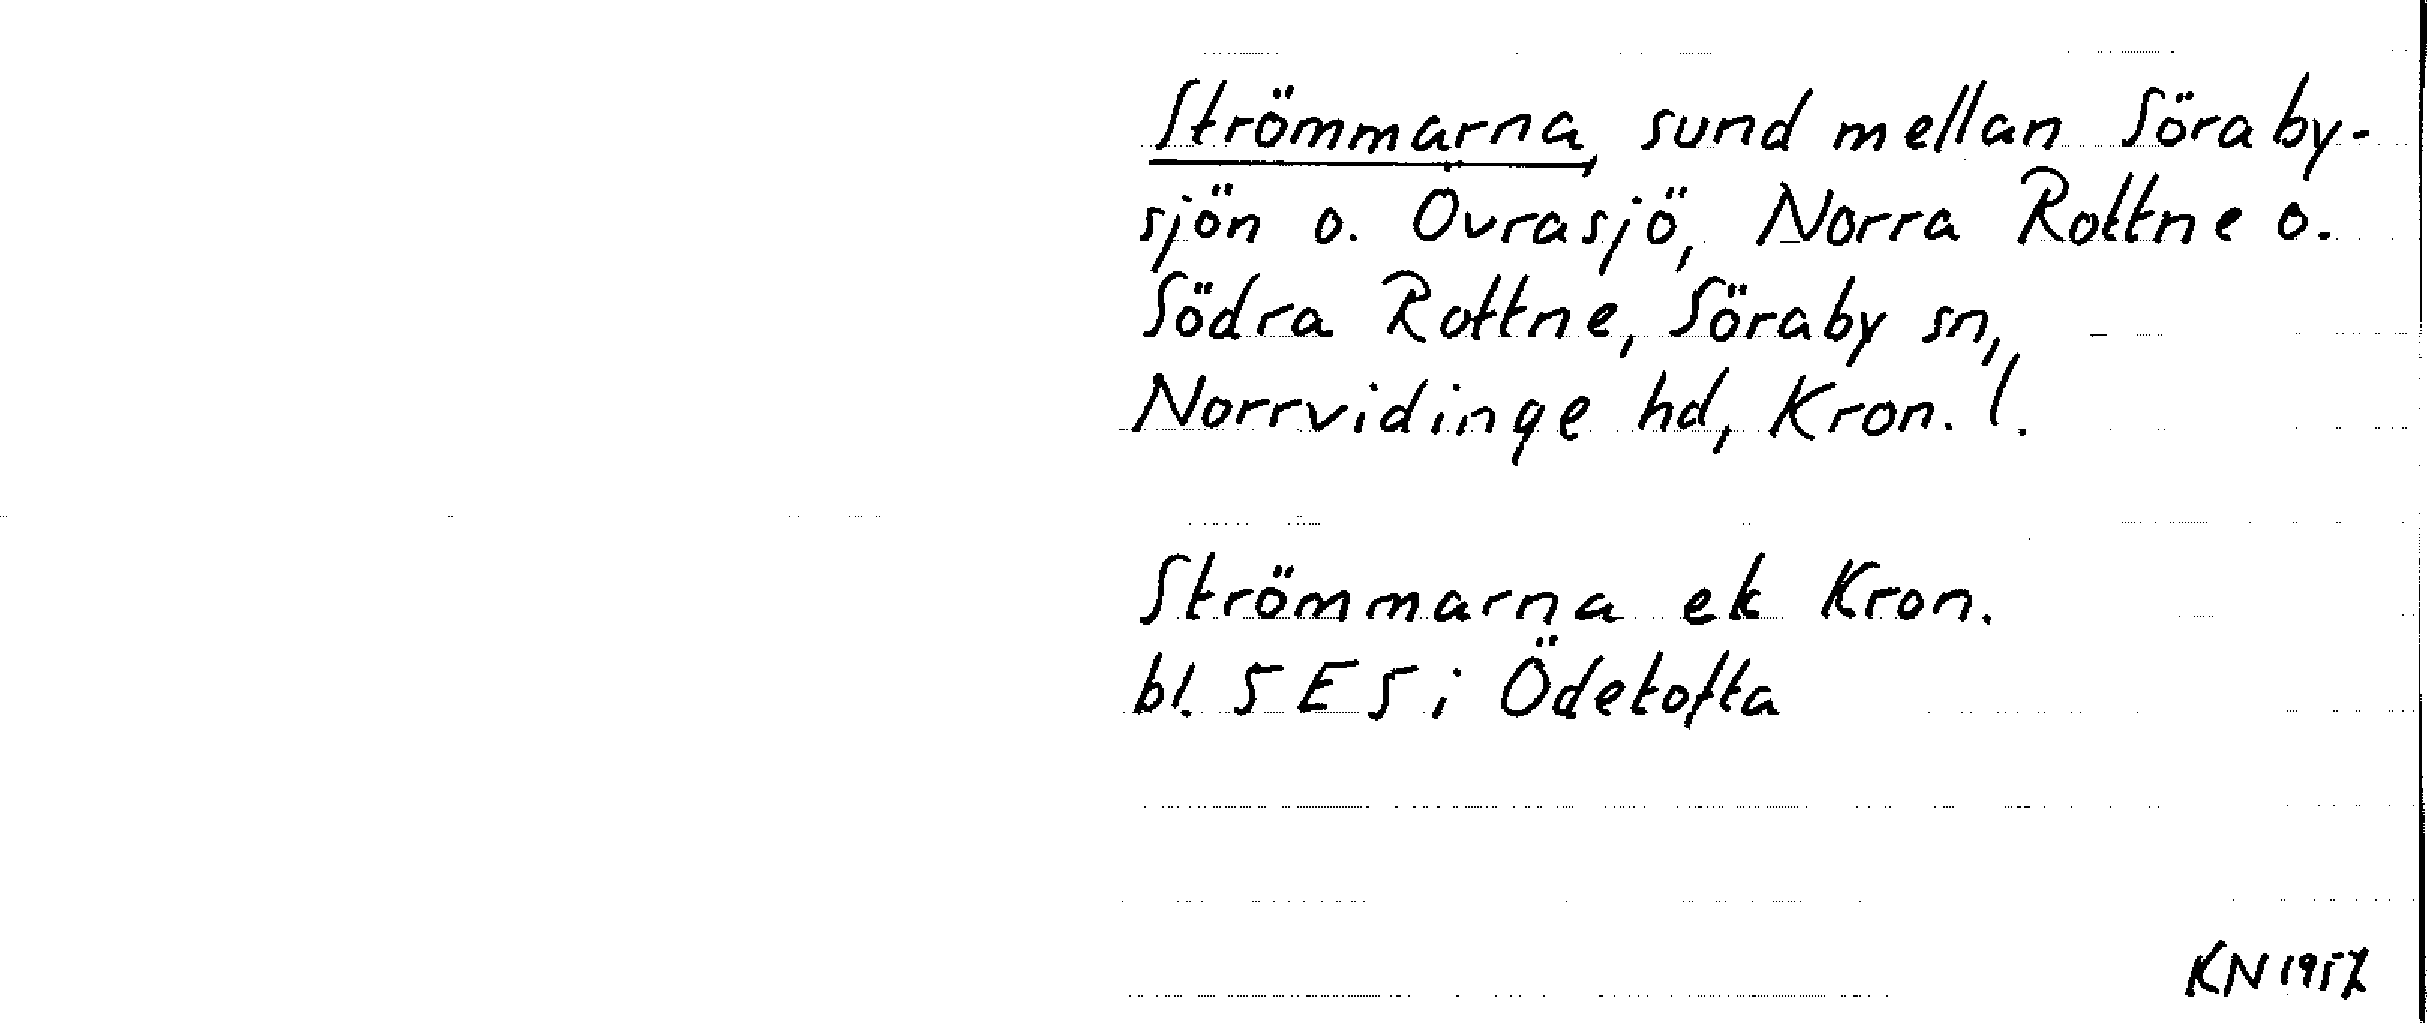 Strömmarna, sund mellan Söraby-
sjön o. Övrasjö, Norra Rottne o.
Södra Rottne, Söraby sn,
Norrvidinge hd, Kron. l.
Strömmarna ek Kron.
bl. 5 E 5 i Ödetofta
KN 1957